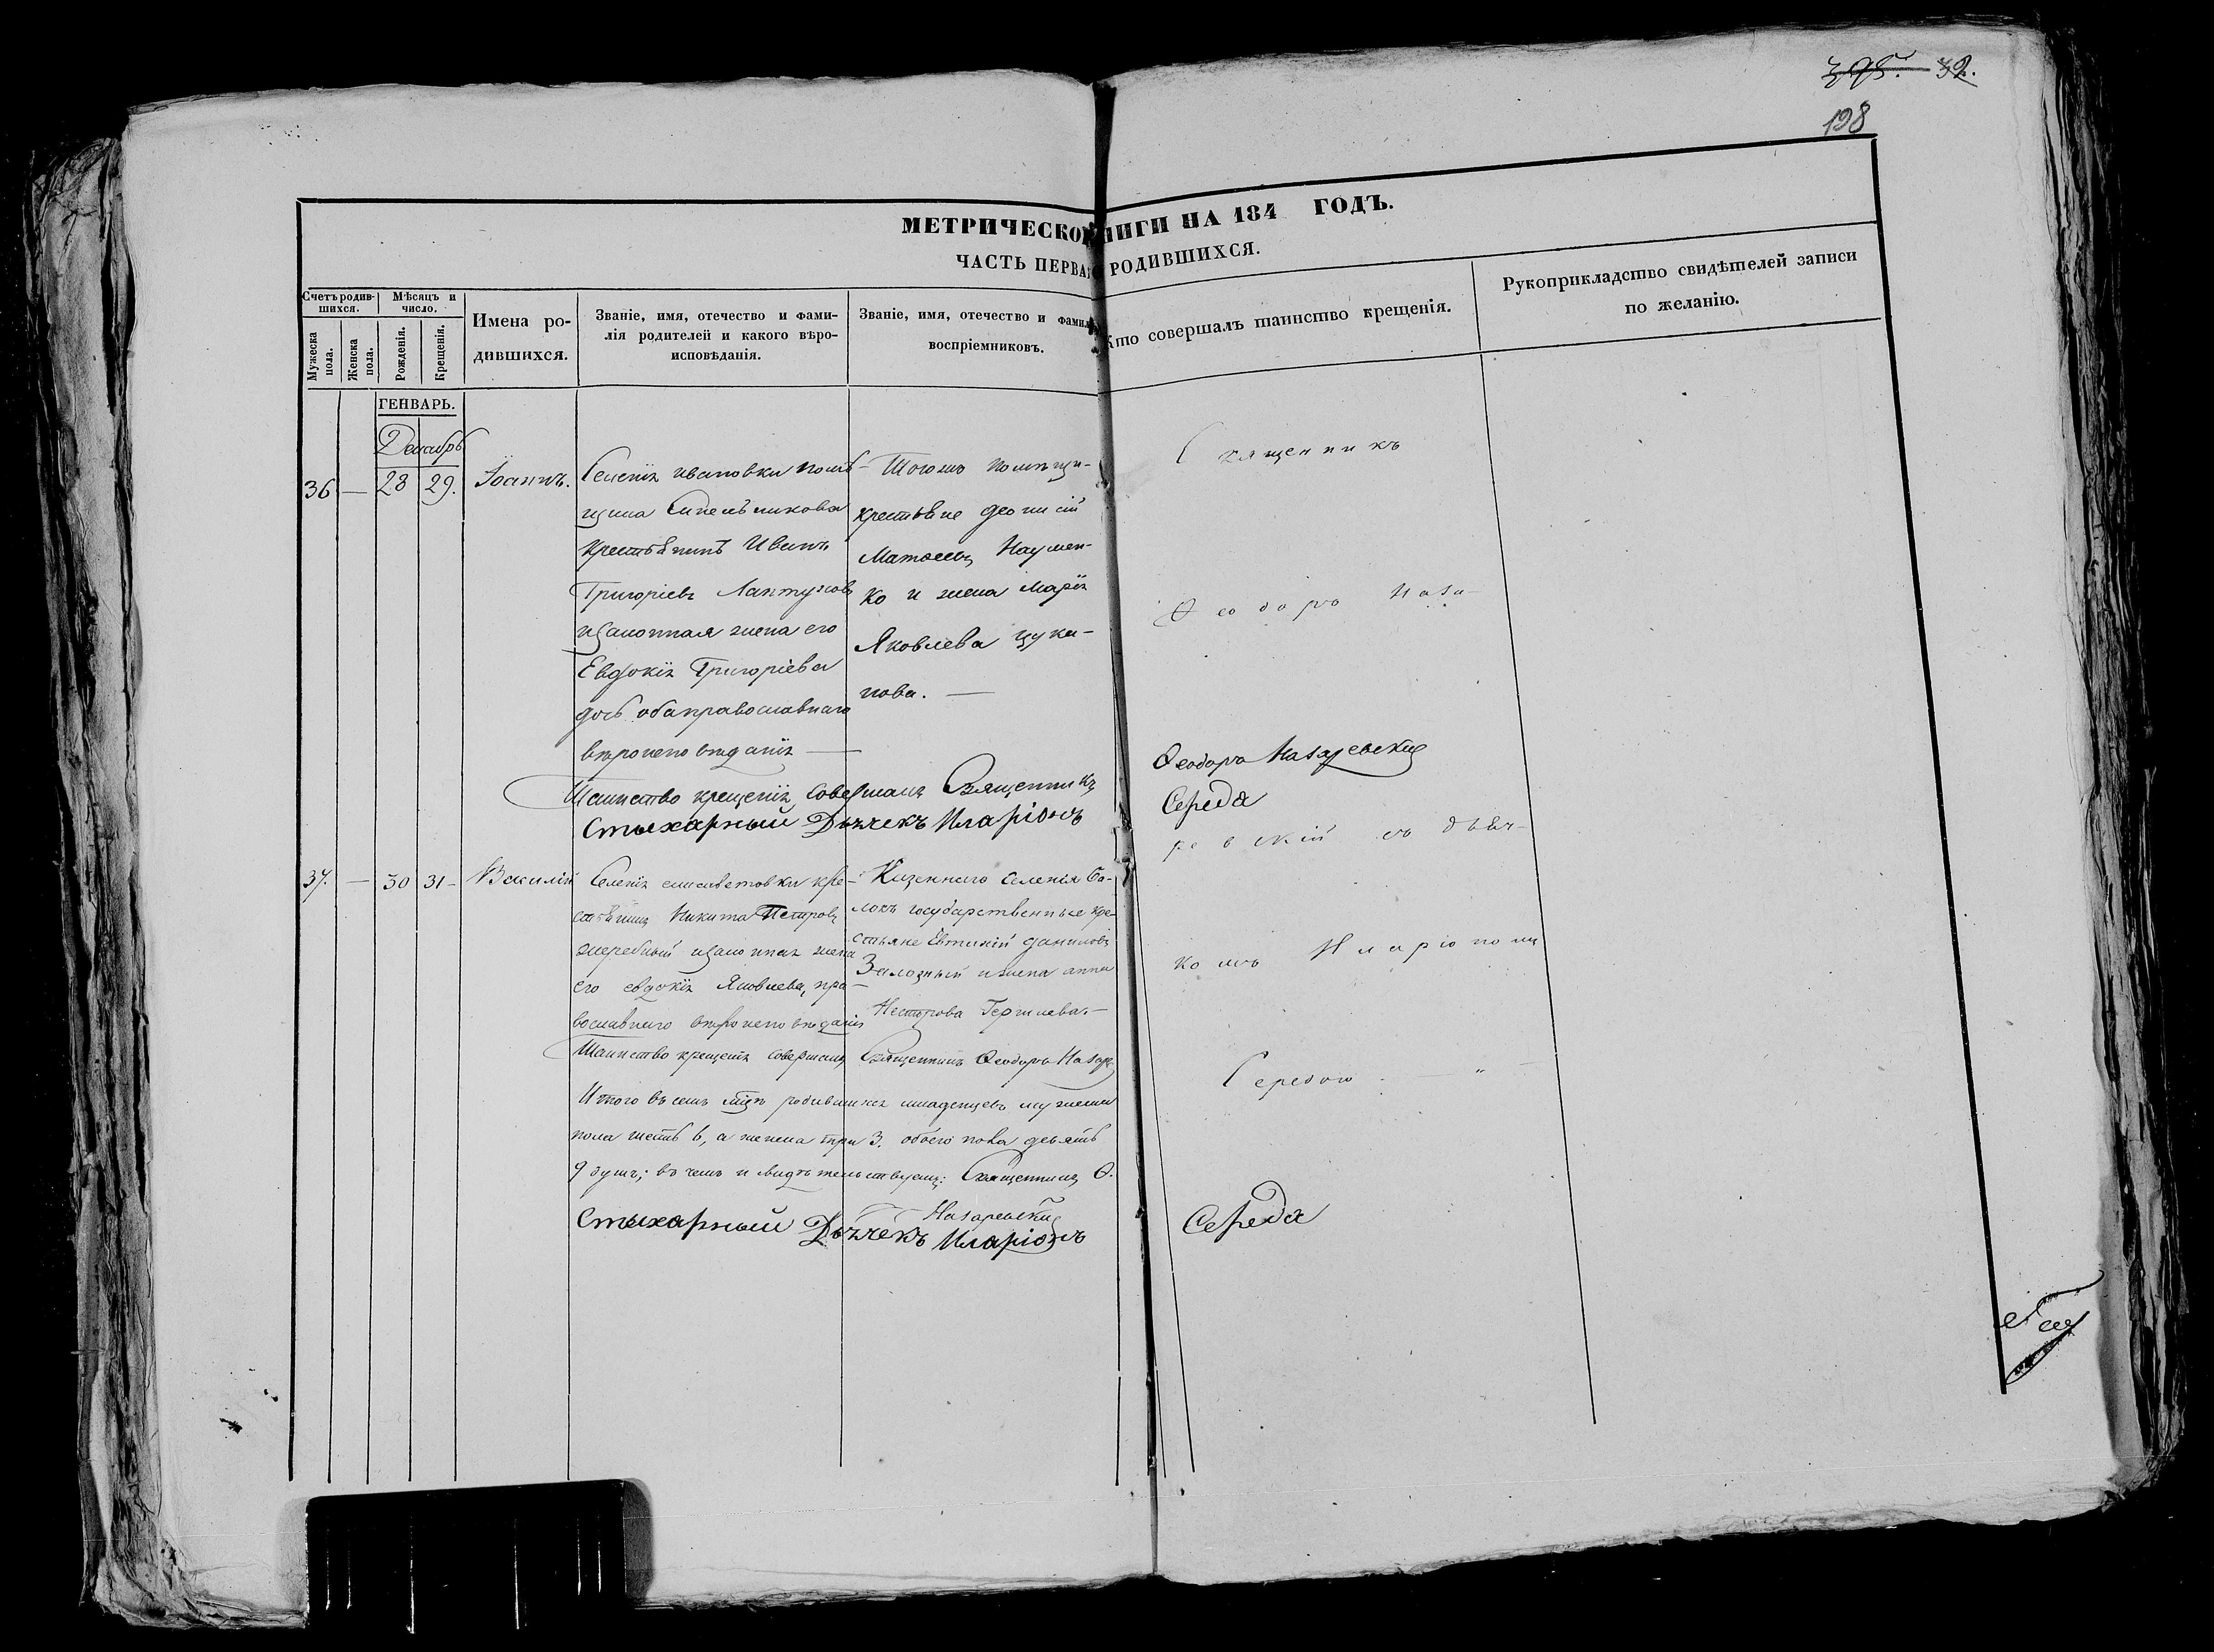 395. 32.
198
МЕТРИЧЕСКОЙ НИГИ НА 184 ГОДЪ.
ЧАСТЬ ПЕРВАЯ РОДИВШИХСЯ.
Счетъ родив-
шихся.
Мужеска пола.
Женска пола.
Мѣсяцъ и
число.
Рожденія.
Крещенія.
Имена ро-
дившихся.
Званіе, имя, отечество и фами-
лія родителей и какого вѣро-
исповѣданія.
Званіе, имя, отечество и фамил
воспріемниковъ.
Кто совершалъ таинство крещенія.
Рукоприкладство свидѣтелей записи
по желанію.
ГЕНВАРЬ.
Декабрь
36 — 28 29. Іоаннъ.
Селенія Ивановки помѣ-
щика Синельникова
крестьянинъ Иванъ
Григоріевъ Лантухов
изаконная жена его
Евдокія Григоріева
дочь оба православнаго
вѣроисповѣданія —
Тогожъ помѣщи-
крестьяне Деонисій
Матѳеевъ Наумен-
ко и жена Марія
Яковлева Цука-
нова. —
Священникъ
Ѳеодоръ Наза-
Таинство крещенія совершалъ Священникъ Ѳеодоръ Назаревскій
Стихарный Дьячекъ Иларіонъ Середа
ревскій съ дьяч-
комъ Иларіономъ
Середою. — „ —
37. — 30 31 — Василій
Селенія Елисаветовки кре-
стьянинъ Никита Петровъ
жеребный изаконная жена
его Евдокія Яковлева, пра-
вославнаго вѣроисповѣданія
Казеннаго селенія Ба-
локъ государственные кре-
стьяне Евтихій Даниловъ
Залозный и жена Анна
Несторова
Таинство крещенія совершалъ Священникъ Ѳеодоръ Назар
Итого въ семъ мцѣ родившихся младенцевъ мужеска
пола шесть 6, а женска три 3. обоего пола девять
9 душъ; въ чемъ и свидѣтельствуемъ: Священникъ Ѳ.
Назаревскій
Стихарный Дьячекъ Иларіонъ Середа